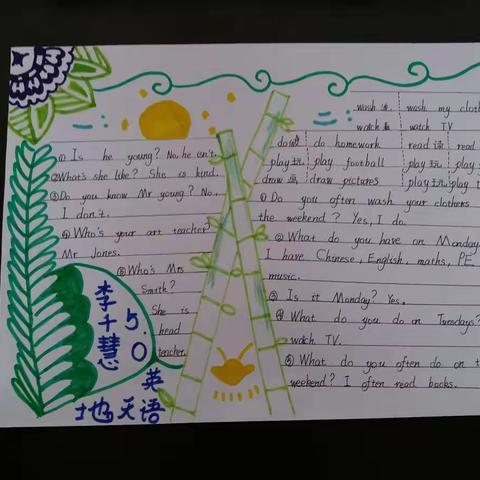 ① Is he young? No, he isn't.
② What's she like? She is kind.
③ Do you know Mr young? No,
I don't.
④ Who's your art teacher
Mr Jones.
⑤ Who's Mrs
Smith?
She is
head
teacher.
李千慧
5.0
英
地天语
wash 洗 wash my cloth
watch 看 watch TV
do 做 do homework read 读 read
play 玩 play football play 玩 play
draw 画 draw pictures play 玩 play
① Do you often wash your clothes
the weekend? Yes, I do.
② What do you have on Monday
I have Chinese, English, maths, PE
music.
③ Is it Monday? Yes,
④ What do you do on Tuesdays?
watch TV.
⑤ What do you often do on t
weekend? I often read books.